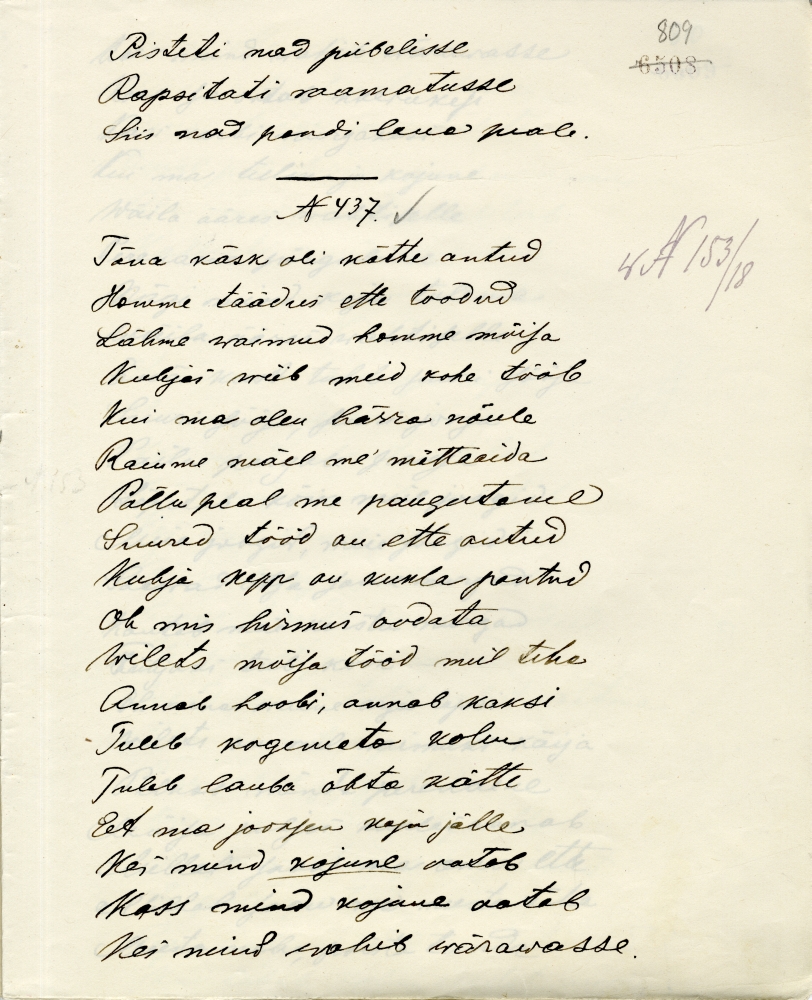 809
6508
Pisteti nad piibelisse
Rapsitati raamatusse
Siis nad pandi laua peale.
N 437.
Täna käsk oli kätte antud
Homme täädus ette toodud
Lähme waimud homme mõisa
Kubjas wiib meid kohe tööb
Kui ma olen härra nõule
N 153/18
Raiume mäel me mättaaida
Põllu peal me paugutame
Suured tööd on ette antud
Kubja kepp on kukla pantud
Oh mis hirmus oodata
Wilets mõisa tööd meil teha
Annab hoobi, annab kaksi
Tuleb kogemata kolm
Tuleb lauba õhta kätte
Eet ma jooksen koju jälle
Kes mind kojune ootab
Kass mind kojune ootab
Kes mind wahib wärawasse.